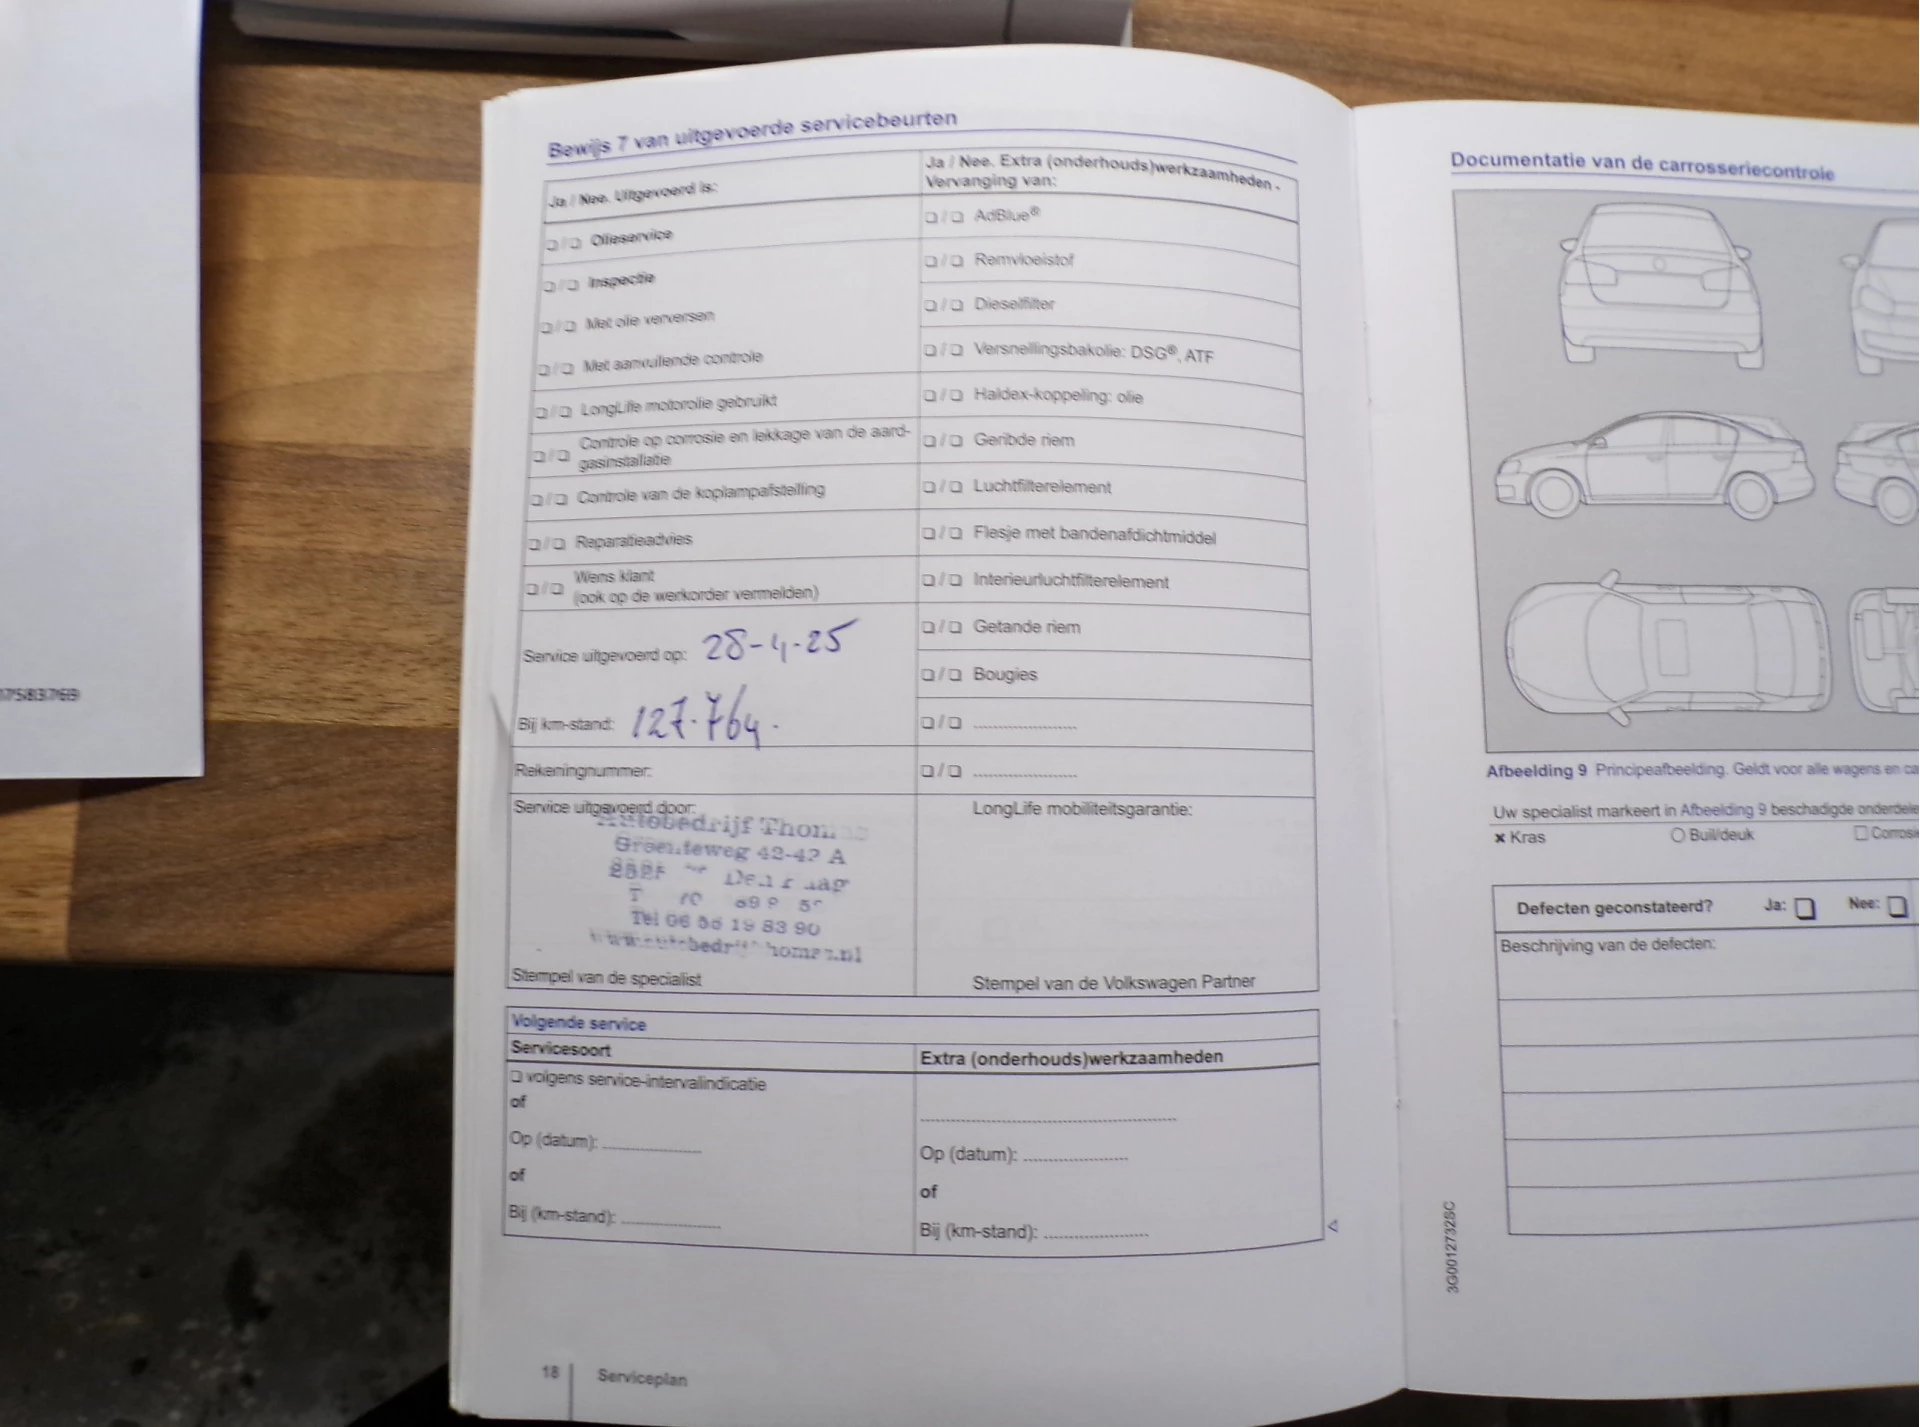 Bewijs 7 van uitgevoerde servicebeurten
Ja / Nee. Uitgevoerd is:
❏ / ❏ Olieservice
❏ / ❏ Inspectie
❏ / ❏ Met olie verversen
❏ / ❏ Met aanvullende controle
❏ / ❏ LongLife motorolie gebruikt
❏ / ❏ Controle op corrosie en lekkage van de aard-
gasinstallatie
❏ / ❏ Controle van de koplampafstelling
❏ / ❏ Reparatieadvies
❏ / ❏ Wens klant
(ook op de werkorder vermelden)
Service uitgevoerd op: 28-4-25
Bij km-stand: 127.764.
Rekeningnummer:
Service uitgevoerd door:
Autobedrijf
42-42 A
Tel 06
Stempel van de specialist
Ja / Nee. Extra (onderhouds)werkzaamheden -
Vervanging van:
❏ / ❏ AdBlue®
❏ / ❏ Remvloeistof
❏ / ❏ Dieselfilter
❏ / ❏ Versnellingsbakolie: DSG®, ATF
❏ / ❏ Haldex-koppeling: olie
❏ / ❏ Geribde riem
❏ / ❏ Luchtfilterelement
❏ / ❏ Flesje met bandenafdichtmiddel
❏ / ❏ Interieurluchtfilterelement
❏ / ❏ Getande riem
❏ / ❏ Bougies
❏ / ❏ ......................
❏ / ❏ ......................
LongLife mobiliteitsgarantie:
Stempel van de Volkswagen Partner
Volgende service
Servicesoort
❏ volgens service-intervalindicatie
of
Op (datum): ......................
of
Bij (km-stand): ......................
Extra (onderhouds)werkzaamheden
......................
Op (datum): ......................
of
Bij (km-stand): ......................
18
Serviceplan
Documentatie van de carrosseriecontrole
Afbeelding 9 Principeafbeelding. Geldt voor alle wagens en
Uw specialist markeert in Afbeelding 9 beschadigde
× Kras
○ Buil/deuk
Defecten geconstateerd?
Ja: ❏
Nee: ❏
Beschrijving van de defecten:
3G0012732SC